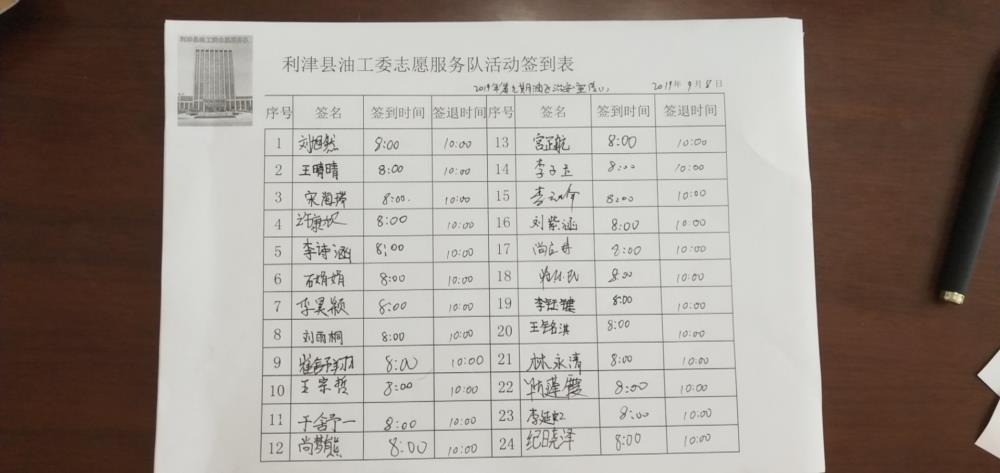 利津县油工委志愿服务队活动签到表
2019年 9月 8日
序号 签名 签到时间 签退时间 序号 签名 签到时间 签退时间
1 刘旭然 8:00 10:00 13 宫正航 8:00 10:00
2 王晴晴 8:00 10:00 14 李子玉 8:00 10:00
3 8:00 10:00 15 8:00 10:00
4 许康欣 8:00 10:00 16 刘紫涵 8:00 10:00
5 李诗涵 8:00 10:00 17 8:00 10:00
6 石娟娟 8:00 10:00 18 8:00 10:00
7 李昊颖 8:00 10:00 19 李钰键 8:00 10:00
8 刘雨桐 8:00 10:00 20 王铭淇 8:00 10:00
9 8:00 10:00 21 林永清 8:00 10:00
10 王宗哲 8:00 10:00 22 8:00 10:00
11 于舍予一 8:00 10:00 23 李延虹 8:00 10:00
12 尚梦熊 8:00 10:00 24 纪晓泽 8:00 10:00